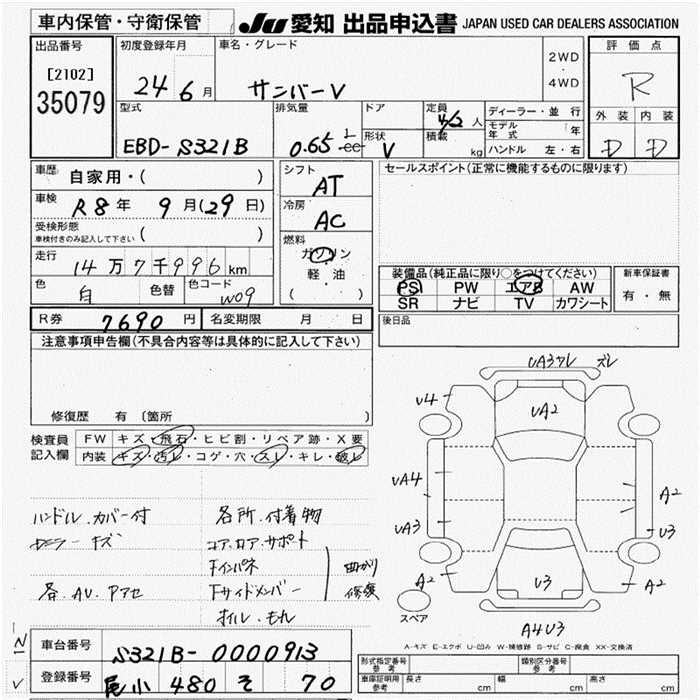 車内保管・守衛保管
JU 愛知 出品申込書 JAPAN USED CAR DEALERS ASSOCIATION
出品番号 [2102] 35079
初度登録年月 24 6月
車名・グレード サンバーV
2WD・4WD
評価点 R
外装 D 内装 D
型式 EBD-S321B
排気量 0.65 L cc
ドア
形状 V
定員 4/2 人
積載 kg
ディーラー・並行
モデル年式 年
ハンドル 左・右
車歴 自家用・( )
車検 R8年 9月(29日)
受検形態 ( )
車検付きのみ記入して下さい
走行 14万7千996km
色 白 色替 色コード W09
シフト AT
冷房 AC
燃料 ガソリン
軽油
( )
セールスポイント(正常に機能するものに限ります)
装備品(純正品に限り○をつけてください)
PS PW エアB AW
SR ナビ TV カワシート
新車保証書
有・無
R券 7690円 名変期限 月 日
後日品
注意事項申告欄(不具合内容等は具体的に記入して下さい)
修復歴 有〔箇所
検査員記入欄
FW キズ・飛石・ヒビ割・リペア跡・X要
内装 キズ・汚レ・コゲ・穴・スレ・キレ・破レ
ハンドル.カバー付
キズ
各.AV.Pアセ
各所.付着物
コア.ロア.サポート
Fインパネ
Fサイドメンバー
曲がり
修復
オイル.もれ
UA3ワレ ズレ
U4
UA2
UA4
UA3
A2
A2
U3
A2
U3
A4U3
スペア
A-キズ E-エクボ U-凹み W-補修跡 S-サビ C-腐食 XX-交換済
車台番号 S321B-0000913
登録番号 尾小 480 そ 70
型式指定番号 参考
類別区分番号 参考
車庫証明記載 参考 長さ cm 幅 cm 高さ cm